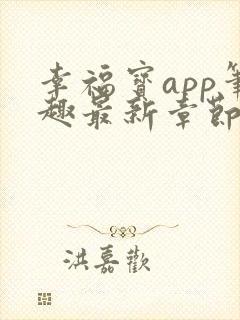 幸福宝app筆
趣最新章節
洪嘉歡